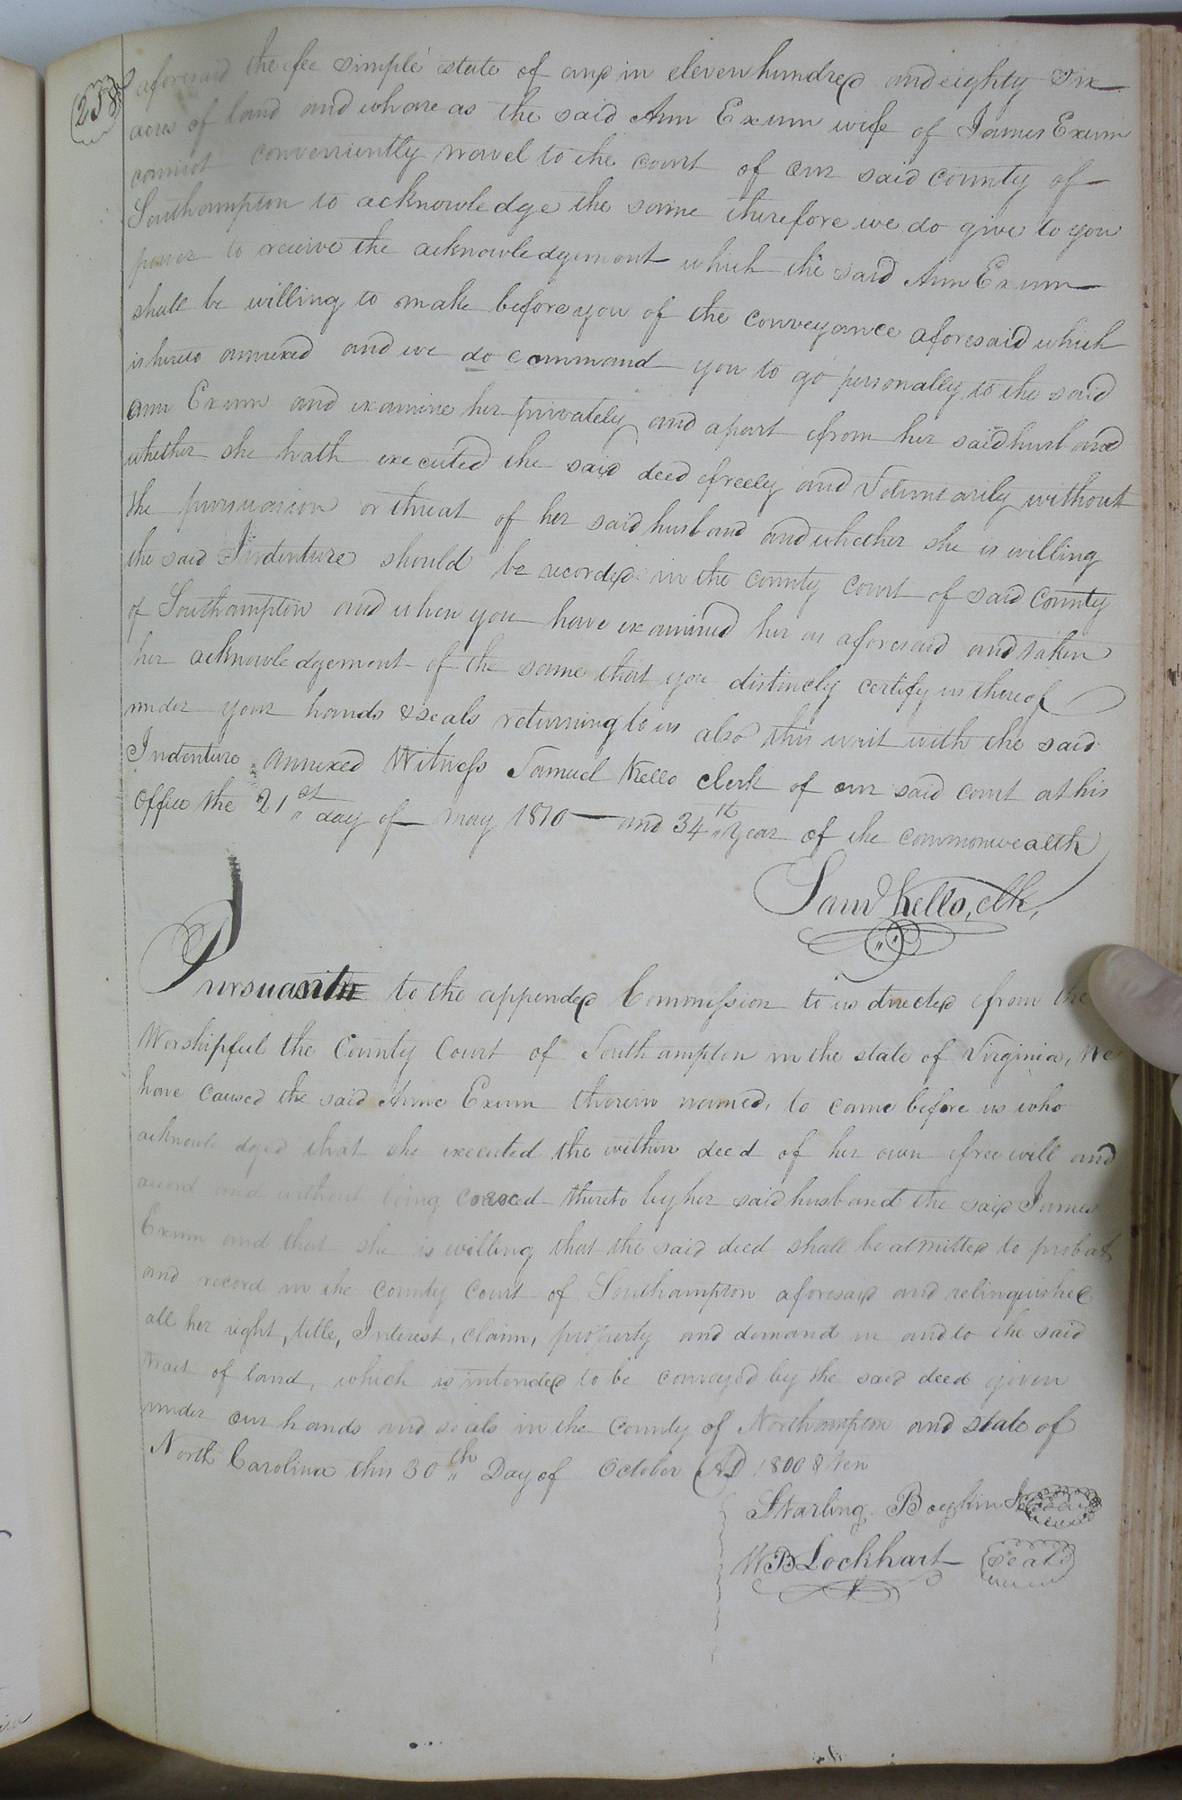 238
aforesaid the fee simple estate of and in eleven hundred and eighty six
acres of land and whareas the said Ann Exum wife of James Exum
cannot conveniently travel to the court of our said county of
Southampton to acknowledge the same therefore we do give to you
power to receive the acknowledgement which the said Ann Exum
shall be willing to make before you of the conveyance aforesaid which
is hereto annexed and we do command you to go personally to the said
Ann Exum and examine her privately and apart from her said husband
whether she hath executed the said deed freely and Voluntarily without
the pursuasion or threat of her said husband and whether she is willing
the said Indenture should be recorded in the county court of said County
of Southampton and when you have examined her as aforesaid and taken
her acknowledgement of the same that you distincly certify us thereof
under your hands & seals returning to us also this writ with the said
Indenture annexed Witness Samuel Kello clerk of our said court at his
Office the 21st day of may 1810 and 34th Year of the commonwealth
Saml Kello, clk,
Pursuant to the appended Commission to us directed from the
Worshipful the County Court of Southampton in the state of Virginia, We
have caused the said Anne Exum therein named, to come before us who
acknowledged that she executed the within deed of her own free will and
accord and without being coerced thereto by her said husband the said James
Exum and that she is willing that the said deed shall be admitted to probat
and record in the County Court of Southampton aforesaid and relinquished
all her right, title, Interest, claim, property and demand in and to the said
tract of land, which is intended to be conveyed by the said deed given
under our hands and seals in the County of Northampton and state of
North Carolina this 30th Day of October AD 1800 & ten
Starling Boykin Seal
WB Lockhart Seal